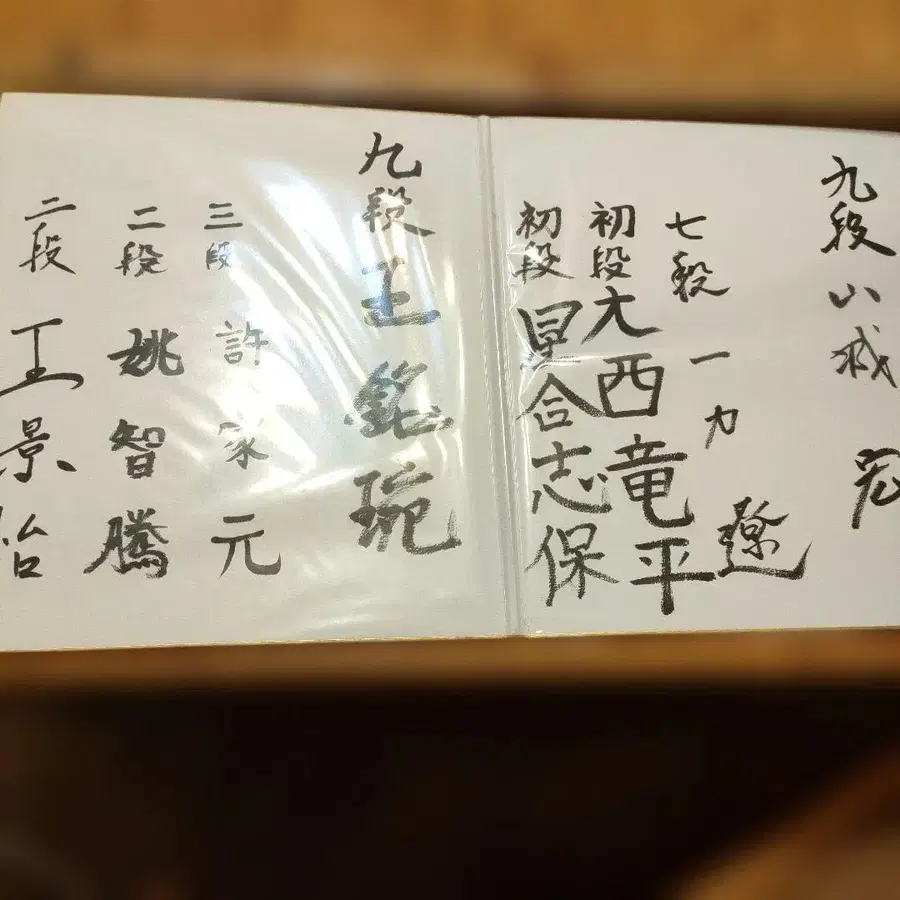 九段 山城 宏
七段 一力 遼
初段 大西竜平
初段 星合志保
九段 王銘琬
三段 許家元
二段 姚智騰
二段 王景怡